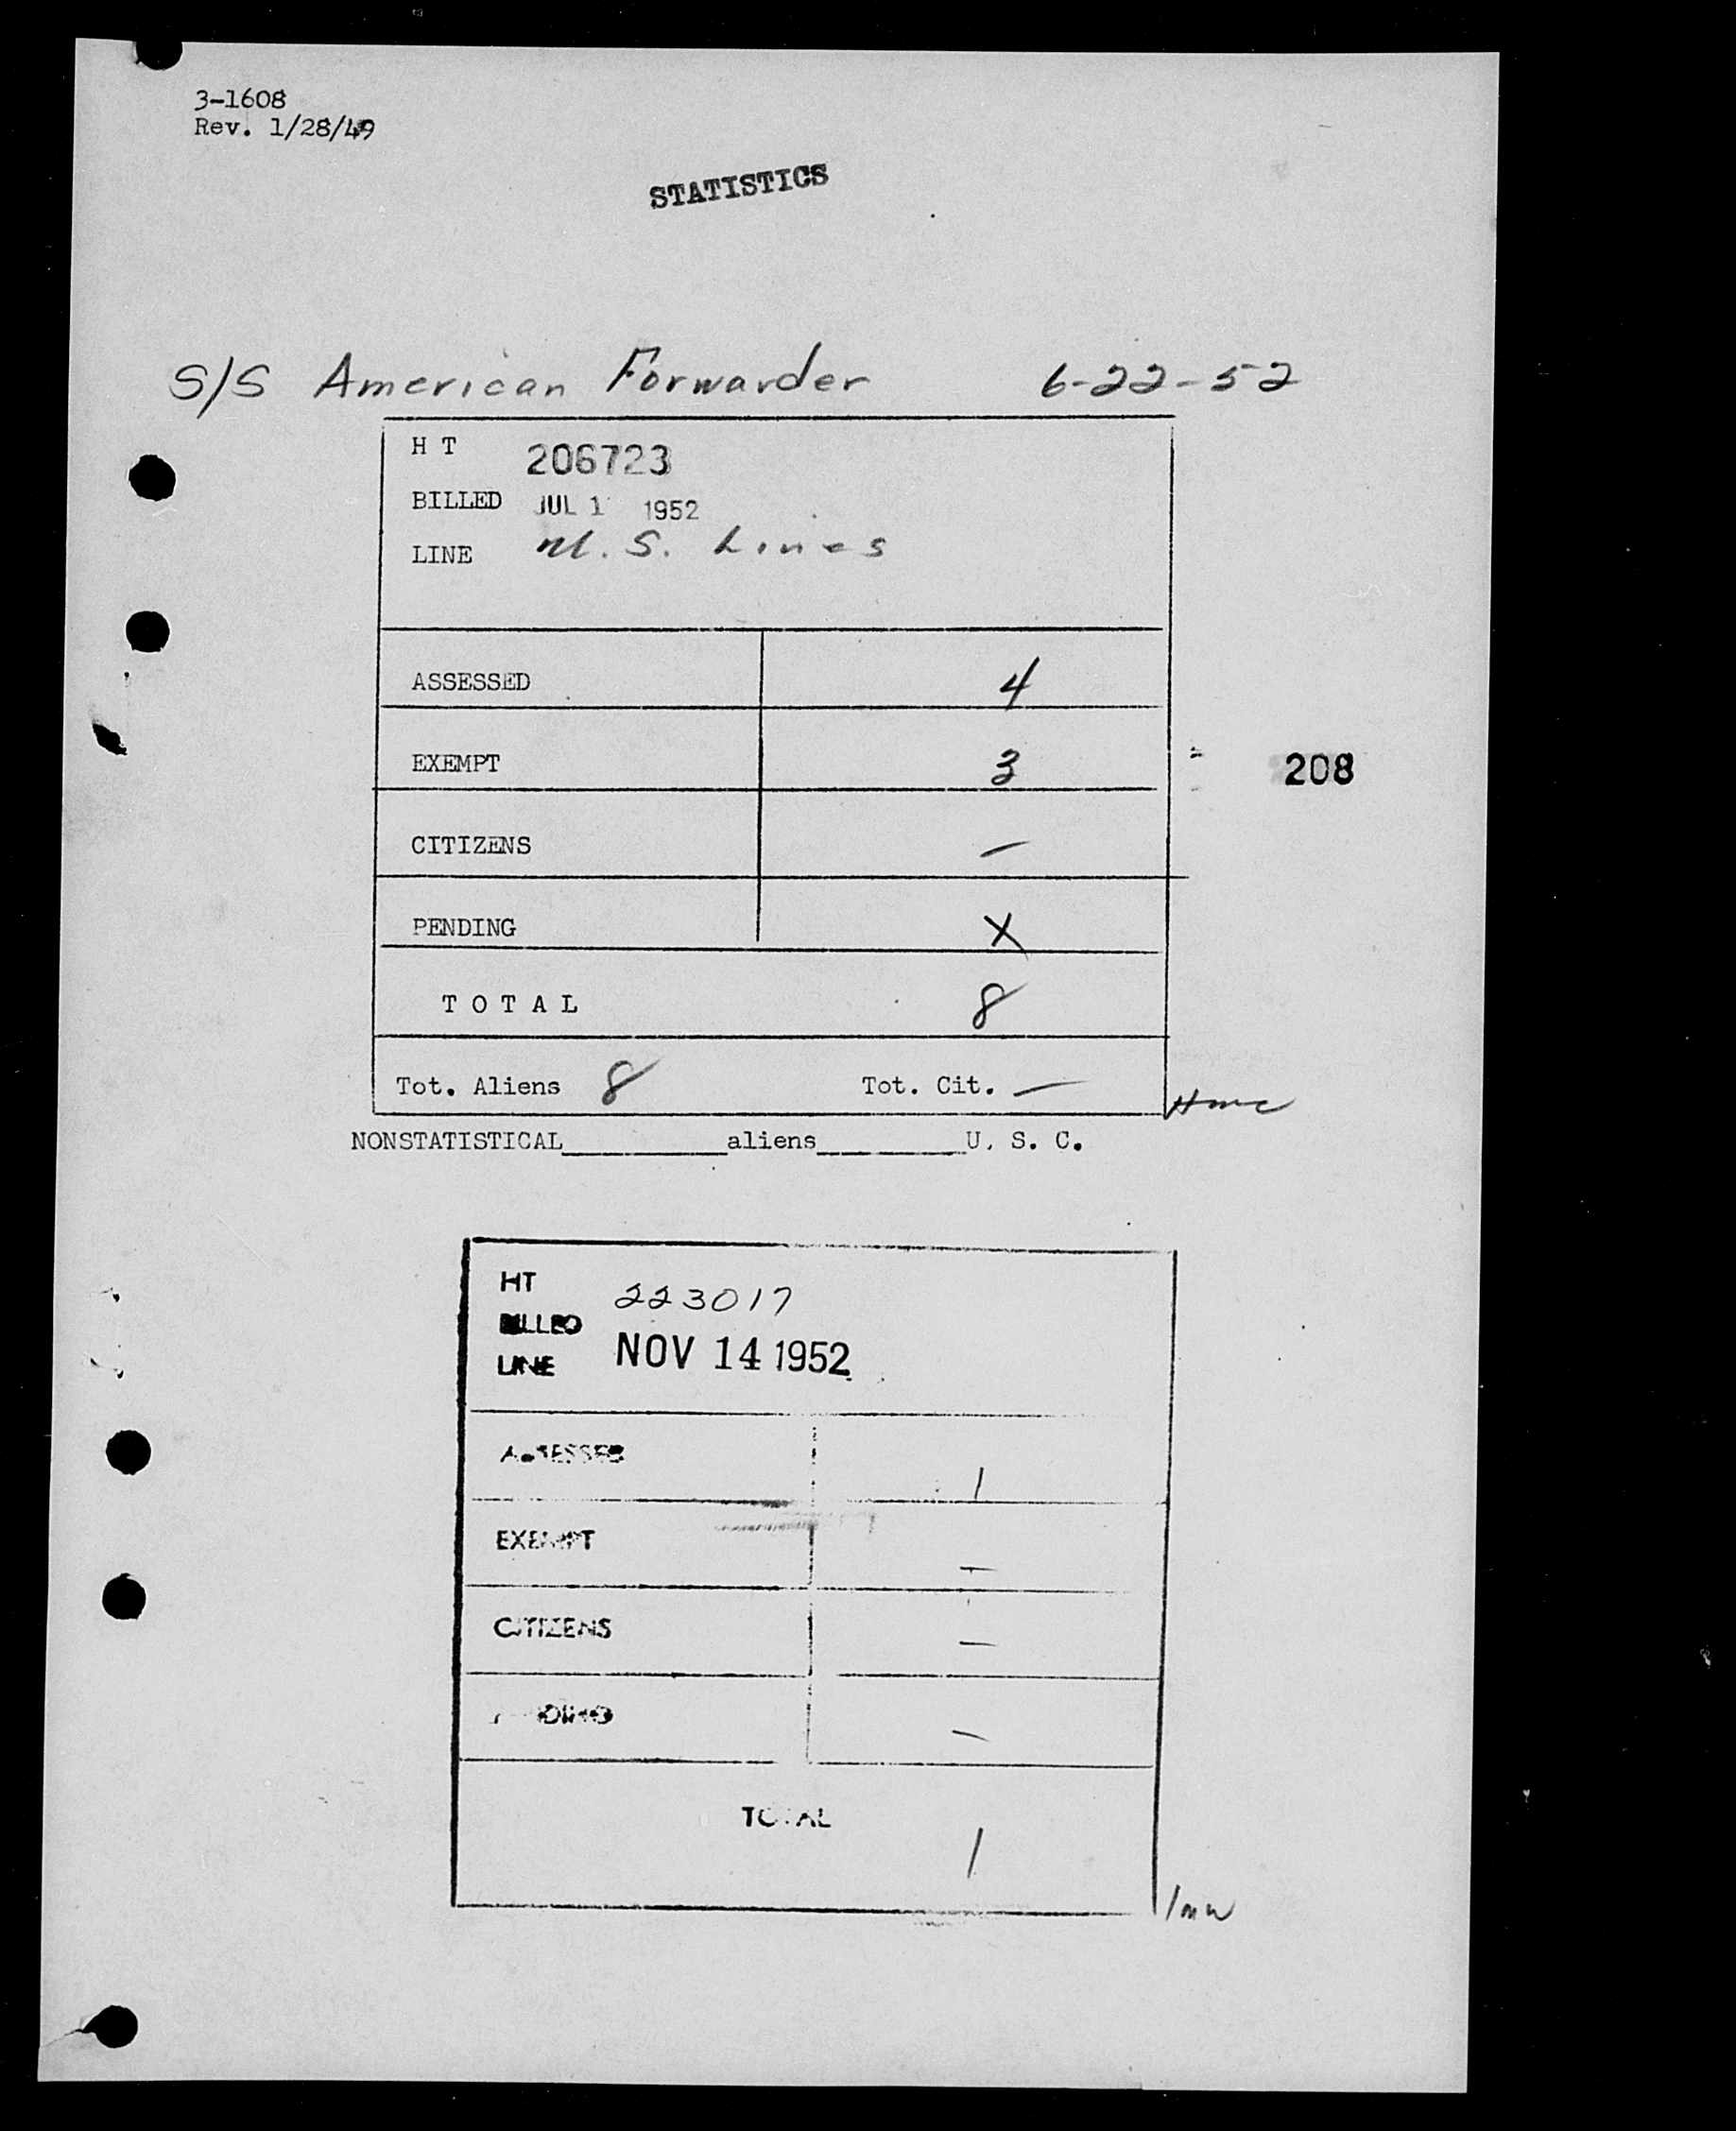 3-1608
Rev. 1/28/49
STATISTICS
S/S American Forwarder 6-22-52
H T 206723
BILLED JUL 1 1952
LINE U. S. Lines
ASSESSED 4
EXEMPT 3
208
CITIZENS —
PENDING X
T O T A L 8
Tot. Aliens 8 Tot. Cit. —
NONSTATISTICAL__________aliens__________U. S. C.
HT 223017
BILLED
LINE NOV 14 1952
ASSESSED 1
EXEMPT —
CITIZENS —
PENDING —
TOTAL
1